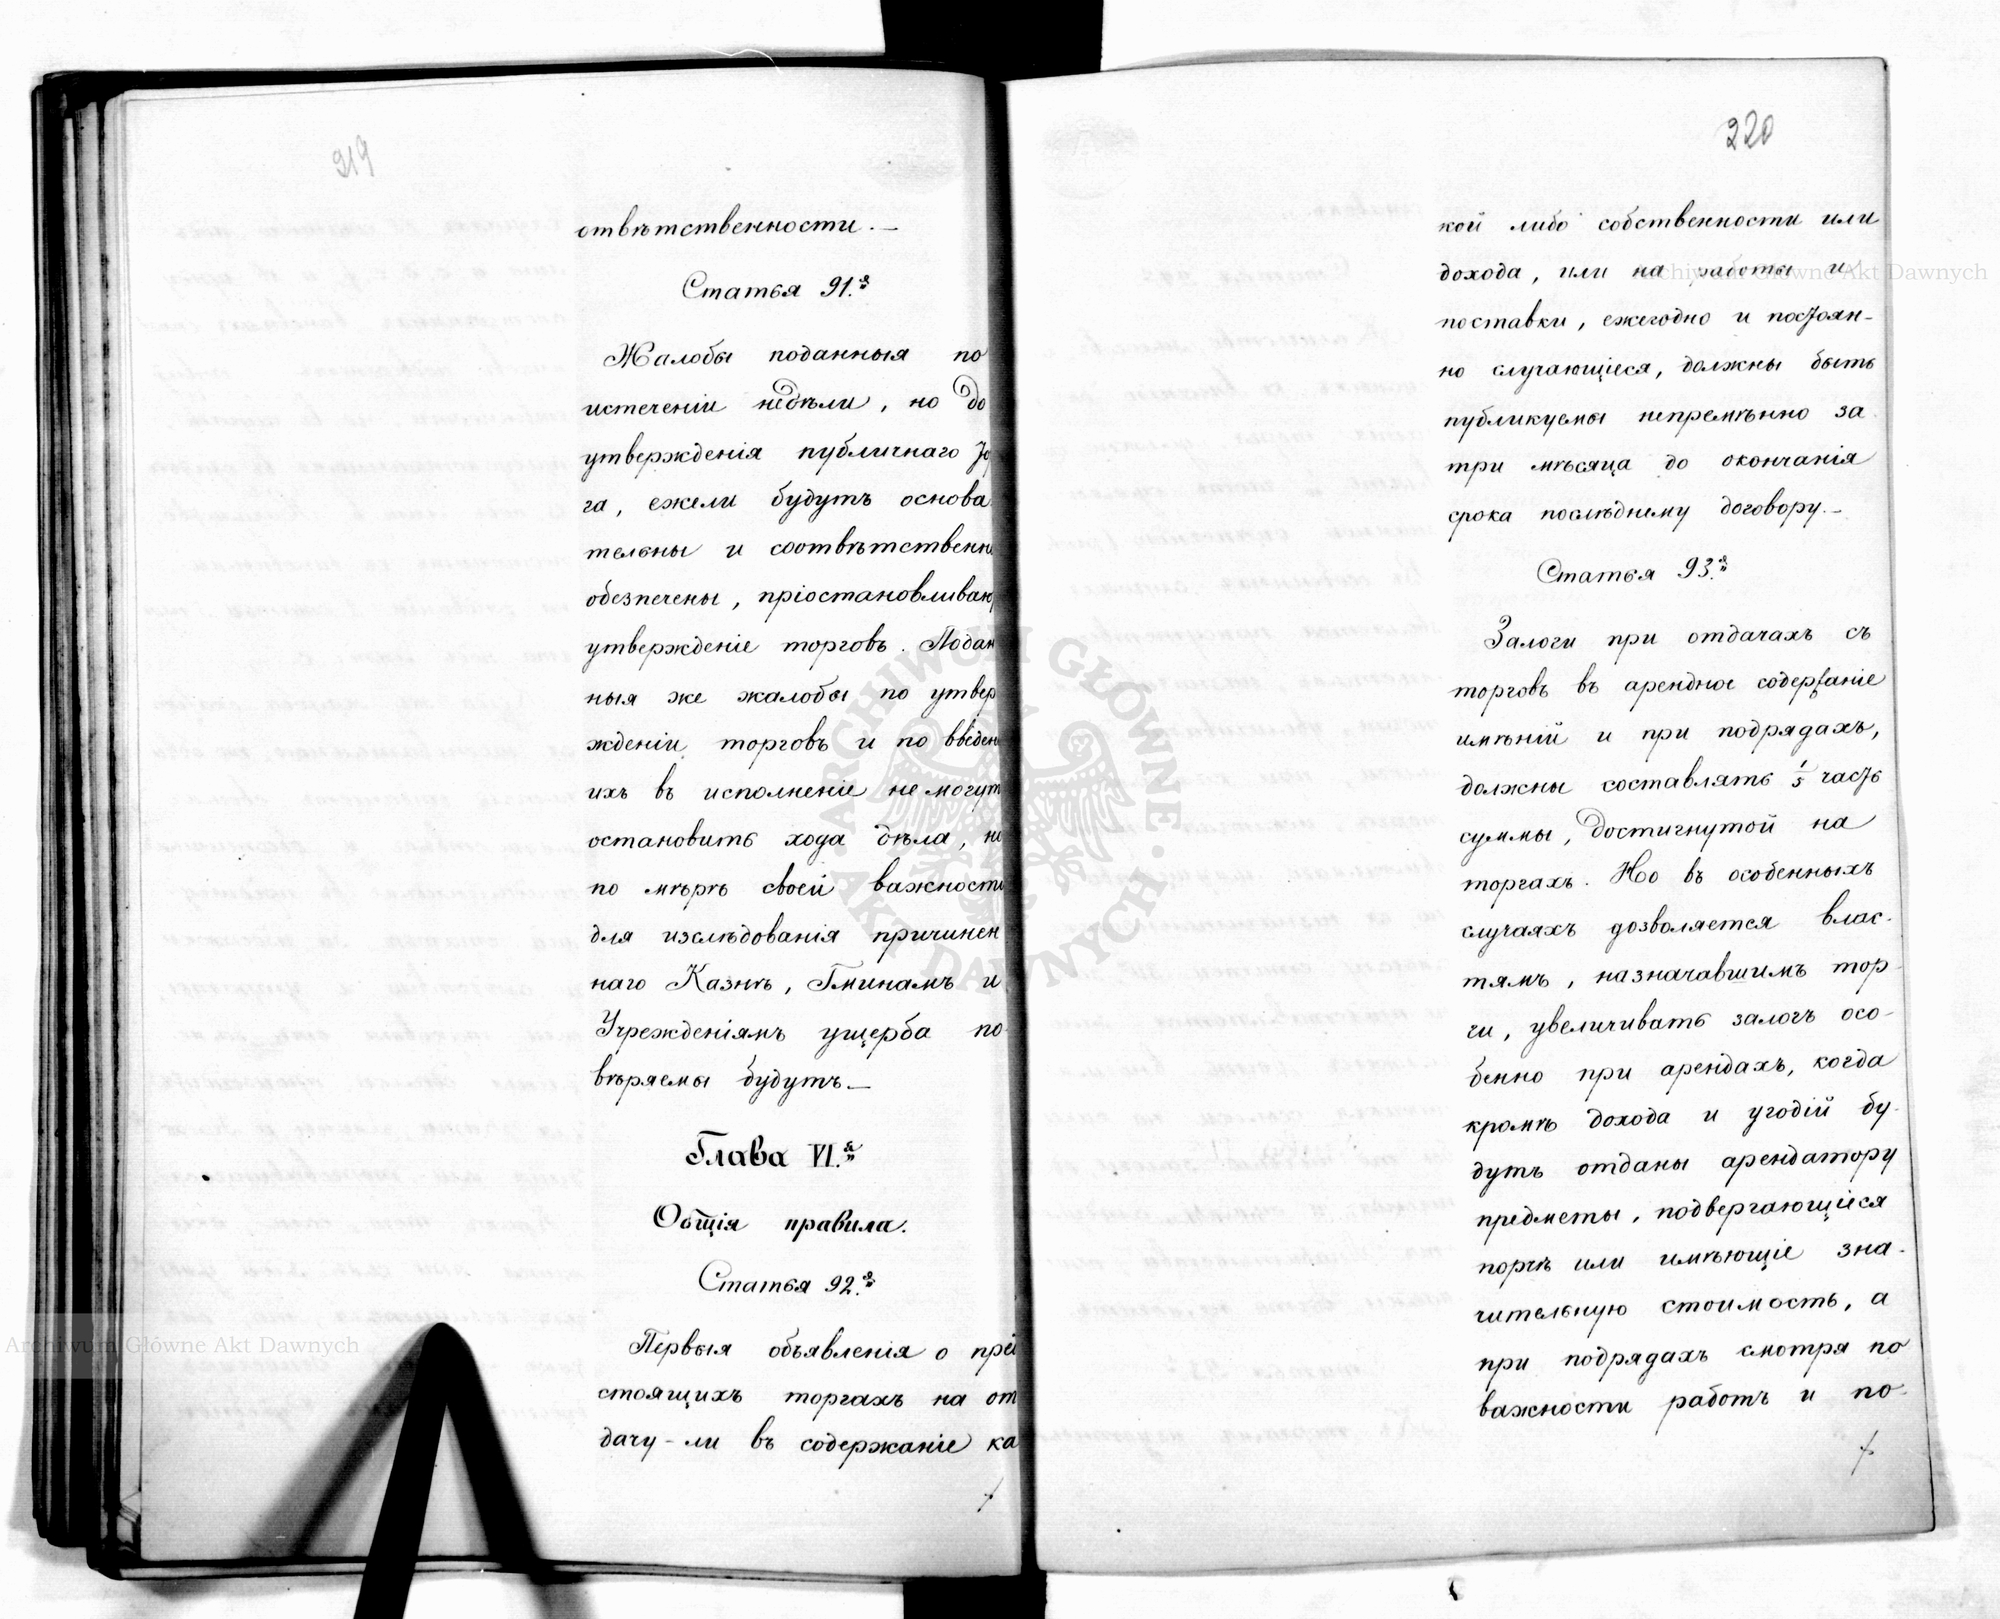 319
отвѣтственности. —
Статья 91.я
Жалобы поданныя по
истеченіи недѣли, но до
утвержденія публичнаго то
га, ежели будутъ основа
тельны и соотвѣтственно
обезпечены, пріостановливаю
утвержденіе торговъ. Подан
ныя же жалобы по утвер
жденіи торговъ и по введен
ихъ въ исполненіе не могут
остановить хода дѣла, но
по мѣрѣ своей важности
для изслѣдованія причинен
наго Казнѣ, Гминамъ и
Учрежденіямъ ущерба по
вѣряемы будутъ. —
Глава VI.я
Общія правила.
Статья 92.я
Первыя объявленія о пред
стоящихъ торгахъ на от
дачу-ли въ содержаніе ка
220
кой либо собственности или
дохода, или на работы и
поставки, ежегодно и постоян-
но случающіеся, должны быть
публикуемы непремѣнно за
три мѣсяца до окончанія
срока послѣднему договору. —
Статья 93.я
Залоги при отдачахъ съ
торговъ въ арендное содержаніе
имѣній и при подрядахъ,
должны составлять 1/5 часть
суммы, достигнутой на
торгахъ. Но въ особенныхъ
случаяхъ дозволяется влас-
тямъ, назначавшимъ тор-
ги, увеличивать залогъ осо-
бенно при арендахъ, когда
кромѣ дохода и угодій бу-
дутъ отданы арендатору
предметы, подвергающіеся
порчѣ или имѣющіе зна-
чительную стоимость, а
при подрядахъ смотря по
важности работъ и по-
Archiwum Główne Akt Dawnych
Archiwum Główne Akt Dawnych
ARCHIWUM GŁÓWNE · AKT DAWNYCH ·